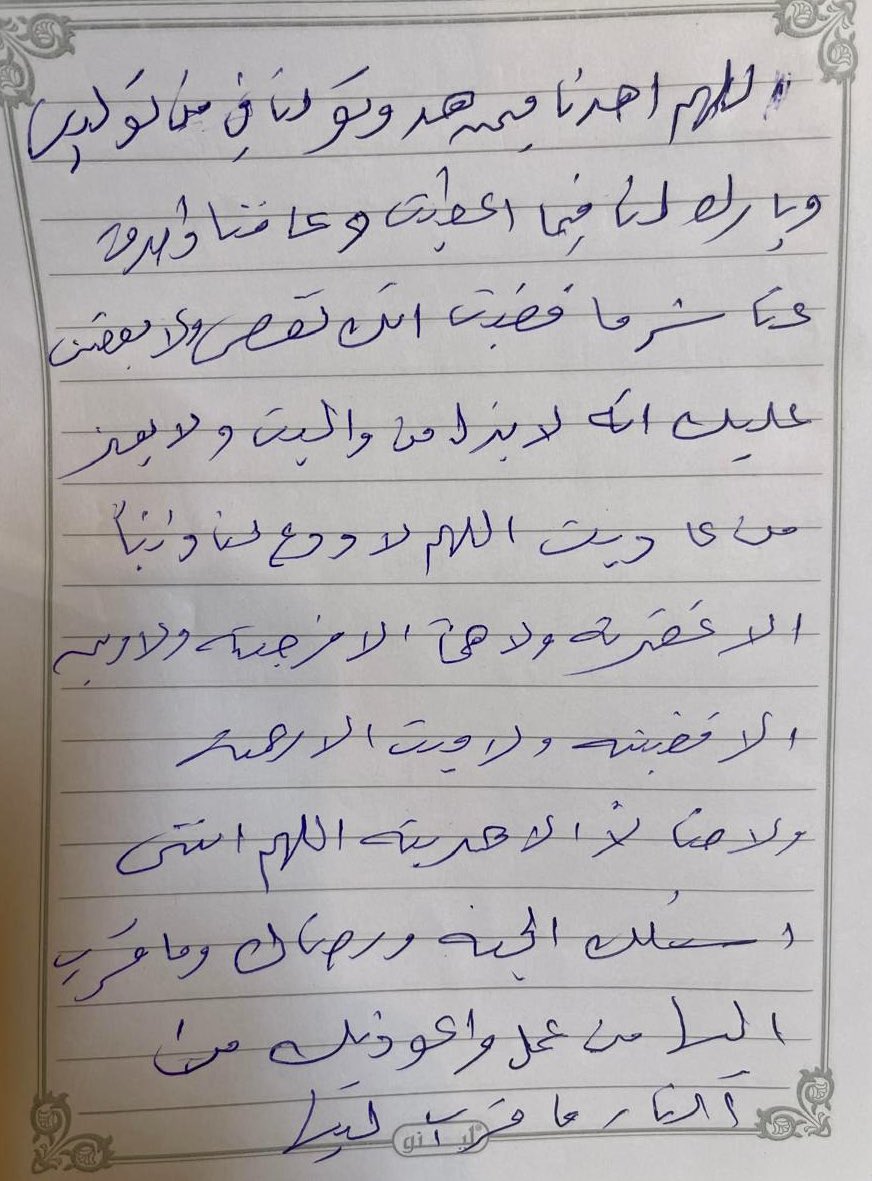 اللهم اهدنا فيمن هد وتولنا في من توليت
وبارك لنا فيما اعطيت وعافنا واصرف
عنا شر ما قضيت انك تقصي ولا يقضى
عليك انه لا يذل من واليت ولا يعز
من عاديت اللهم لا ودع لنا ذنباً
الا غفرته ولا هماً الا فرجته ولا دين
الا قضيته ولا ميت الا رحمته
ولا ضالاً الا هديته اللهم انني
اسئلك الجنه ورضاك وما قرب
اليها من عمل واعوذ بك من
النار ما قرب ليها
لبنانو